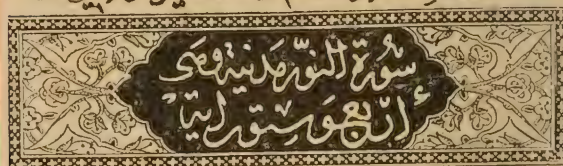 سُورَةُ النُّورِ مَدَنِيَّة وَهِىَ
أَرْبَع وَسِتُّونَ اٰيَة